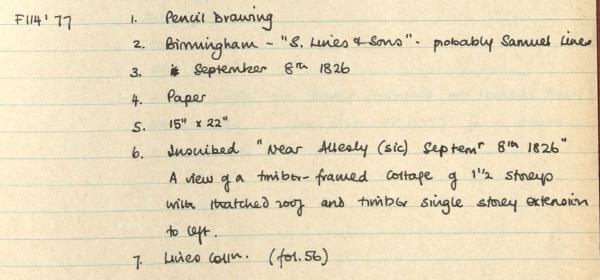 F114' 77 1. Pencil Drawing
2. Birmingham - "S. Lines & Sons" - probably Samuel Lines
3. September 8th 1826
4. Paper
5. 15" x 22"
6. Inscribed "Near Allesly (sic) Septemr 8th 1826"
A view of a timber-framed cottage of 1½ storeys
with thatched roof and timber single storey extension
to left.
7. Lines Colln. (fol. 56)